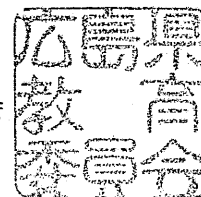 広島県
教育
委員会